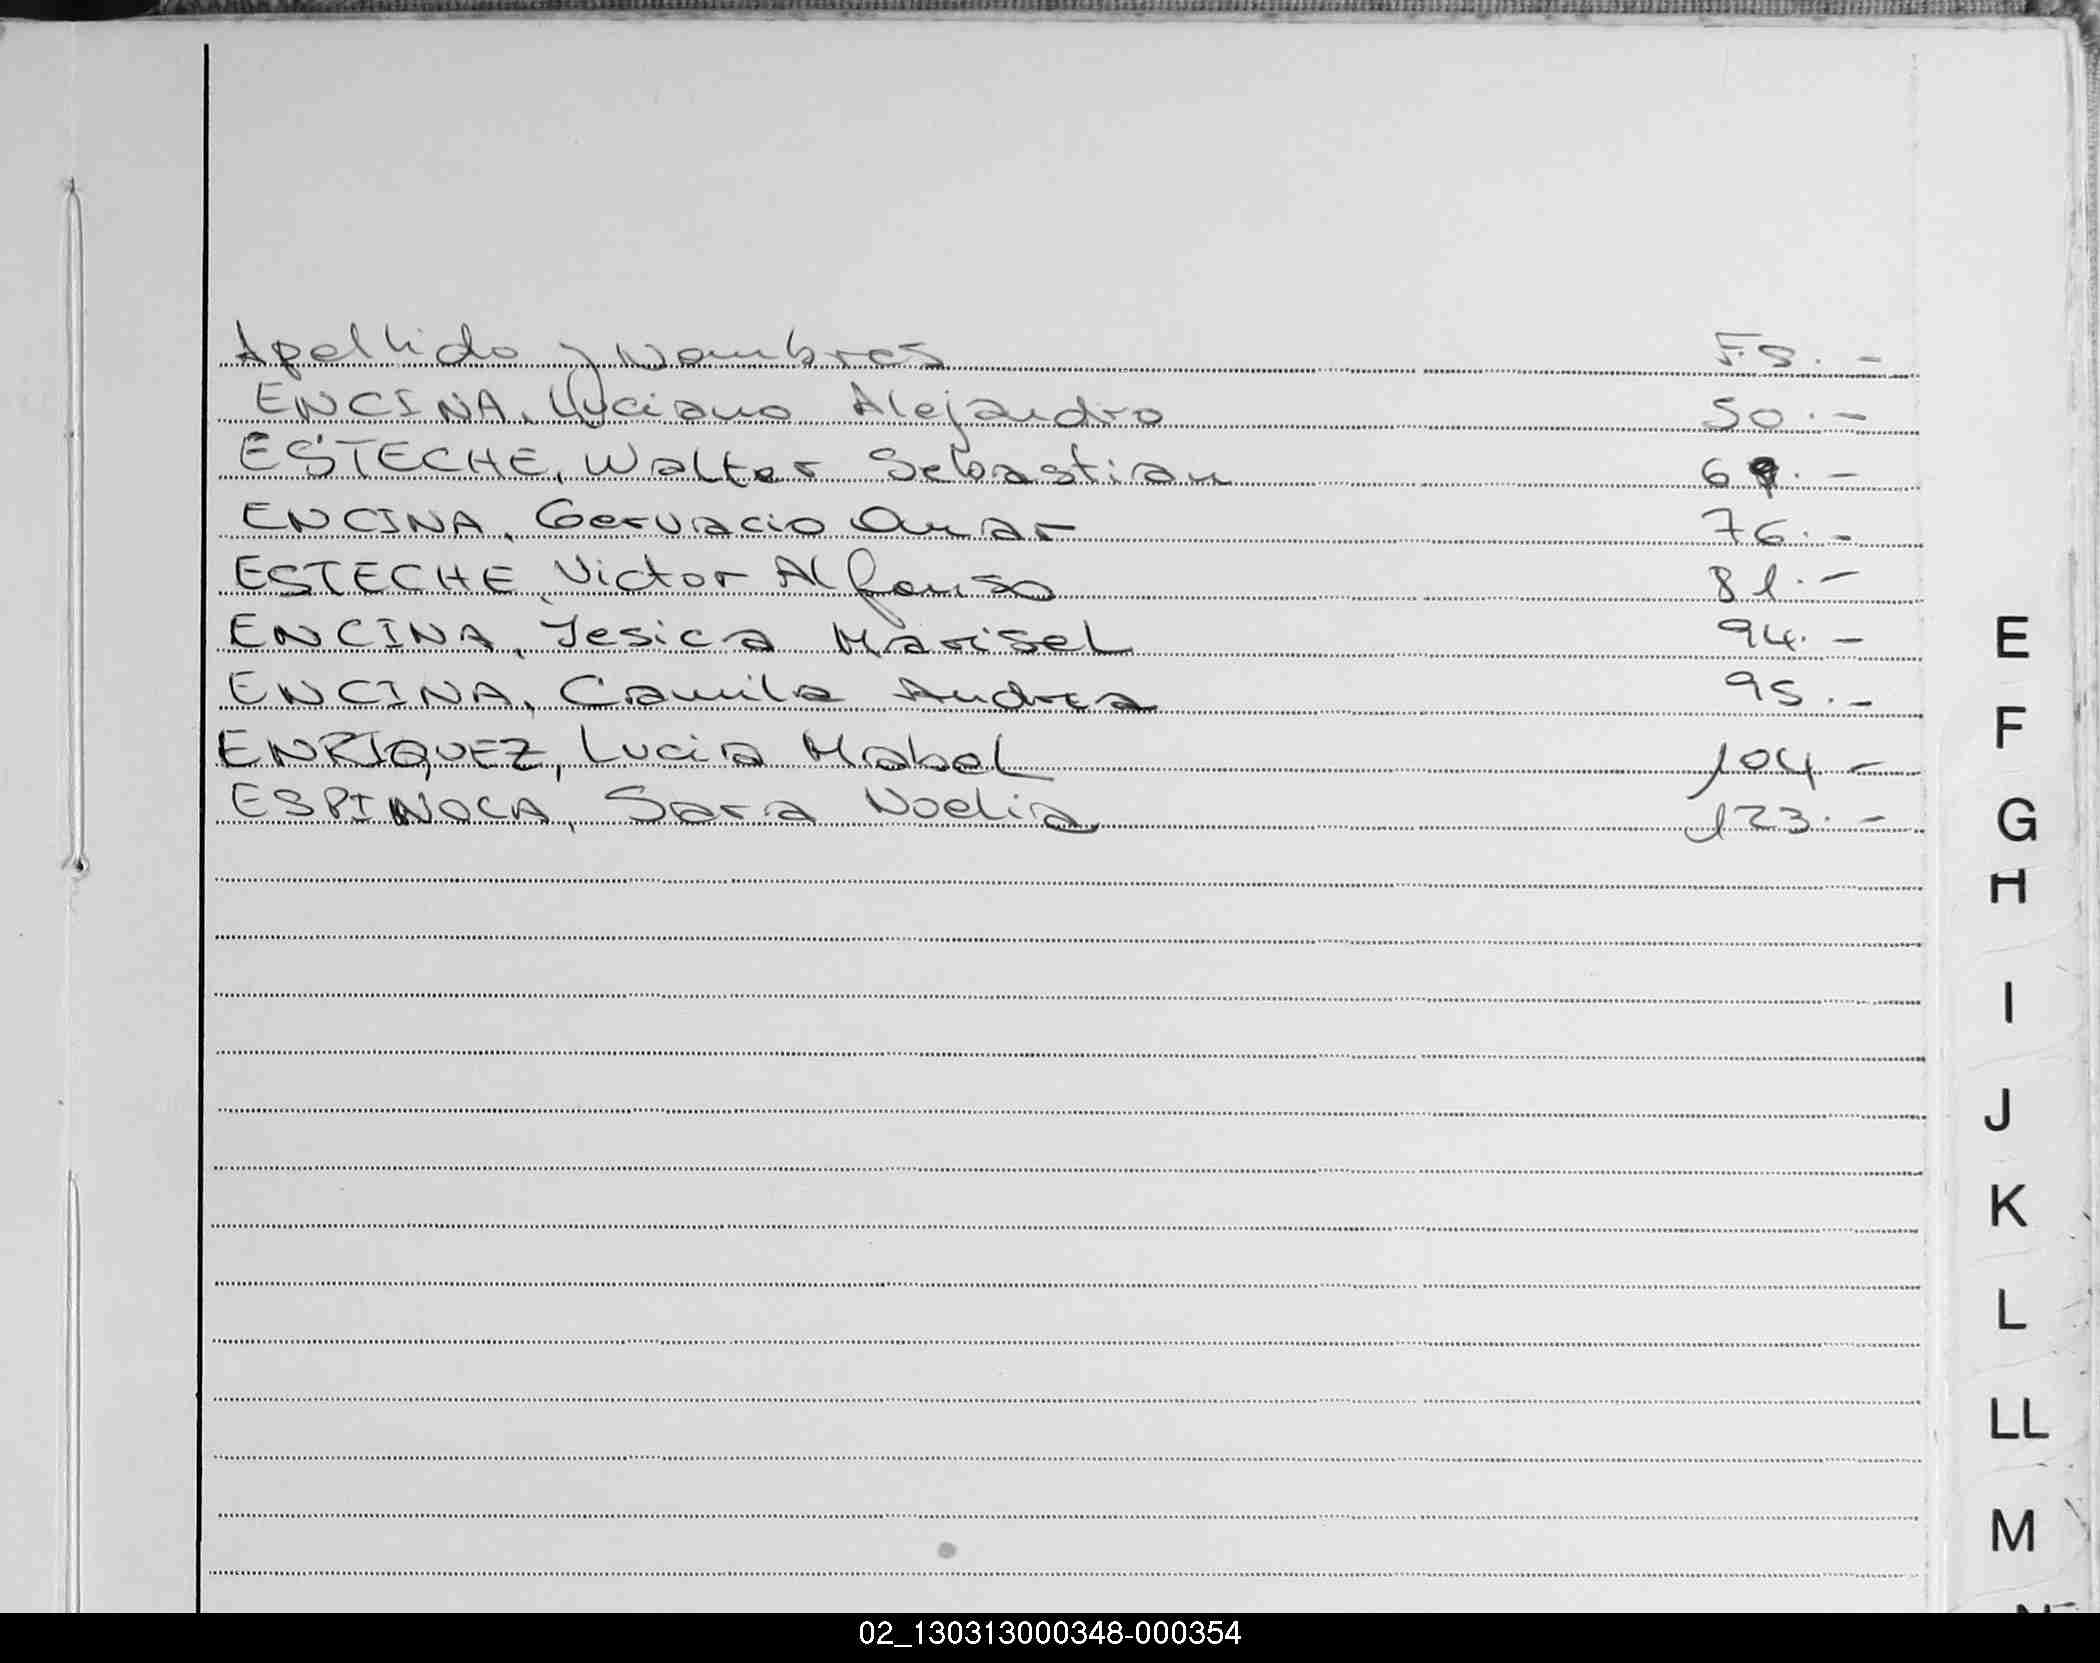 Apellido y Nombres Fs. -
ENCINA, Luciano Alejandro 50. -
ESTECHE, Walter Sebastian 69. -
ENCINA, Gervacio Omar 76. -
ESTECHE, Victor Alfonso 81. -
ENCINA, Jesica Marisel 94. -
ENCINA, Camila Andrea 95. -
ENRIQUEZ, Lucia Mabel 104 -
ESPINOLA, Sara Noelia 123. -
E
F
G
H
I
J
K
L
LL
M
02_130313000348-000354